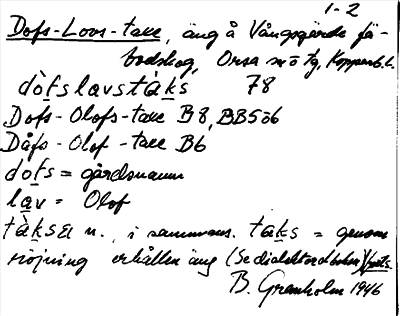 1-2
Dofs-Lovs-take, äng å Vångsgärde fä-
bodskog, Orsa sn o tg, Kopparb. l.
dòfslavstàks 78
Dofs-Olofs-take B8, BB506
Dåfs-Olof-take B6
dofs = gårdsnamn
lav = Olof
tàksa n., i sammans. taks = genom
röjning erhållen äng (Se dialektordboken)
B. Granholm 1946